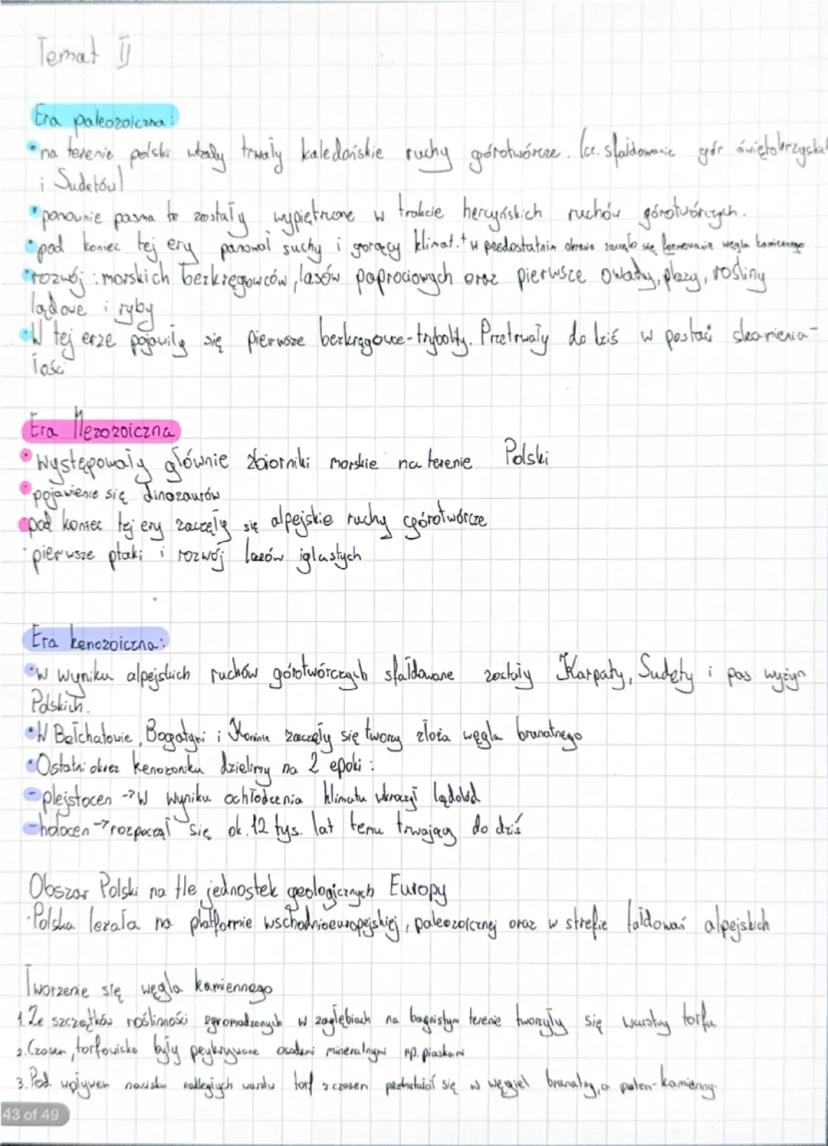 Temat II
Era paleozoiczna:
•na terenie polski wtedy trwały kaledońskie ruchy górotwórcze. (cz. sfałdowanie gór świętokrzyskich
i Sudetów)
•ponownie pasma te zostały wypiętrzone w trakcie hercyńskich ruchów górotwórczych.
•pod koniec tej ery panował suchy i gorący klimat.+ w przedostatnim okresie zaczęło się formowanie węgla kamiennego
•rozwój: morskich bezkręgowców, lasów paprociowych oraz pierwsze owady, płazy, rośliny
lądowe i ryby
•W tej erze pojawiły się pierwsze bezkręgowce-trybolity. Przetrwały do dziś w postaci skamienia-
łości
Era Mezozoiczna
•Występowały głównie zbiorniki morskie na terenie Polski
•pojawienie się dinozaurów
•pod koniec tej ery zaczęły się alpejskie ruchy górotwórcze
•pierwsze ptaki i rozwój lasów iglastych
Era kenozoiczna:
•W wyniku alpejskich ruchów górotwórczych sfałdowane zostały Karpaty, Sudety i pas wyżyn
Polskich.
•W Bełchatowie, Bogatyni i Koninie zaczęły się tworzy złoża węgla brunatnego
•Ostatni okres kenozoniku dzielimy na 2 epoki:
-plejstocen → W wyniku ochłodzenia klimatu wkroczył lądolód
-holocen → rozpoczął się ok. 12 tys. lat temu trwający do dziś
Obszar Polski na tle jednostek geologicznych Europy
•Polska leżała na platformie wschodnioeuropejskiej, paleozoicznej oraz w strefie fałdowań alpejskich
Tworzenie się węgla kamiennego
1. Ze szczątków roślinności zgromadzonych w zagłębiach na bagnistym terenie tworzyły się warstwy torfu
2. Czasem, torfowiska były przykrywane osadami mineralnymi np. piaskami
3. Pod wpływem nacisku nadległych warstw torf z czasem przekształcił się w węgiel brunatny, a potem-kamienny.
43 of 49